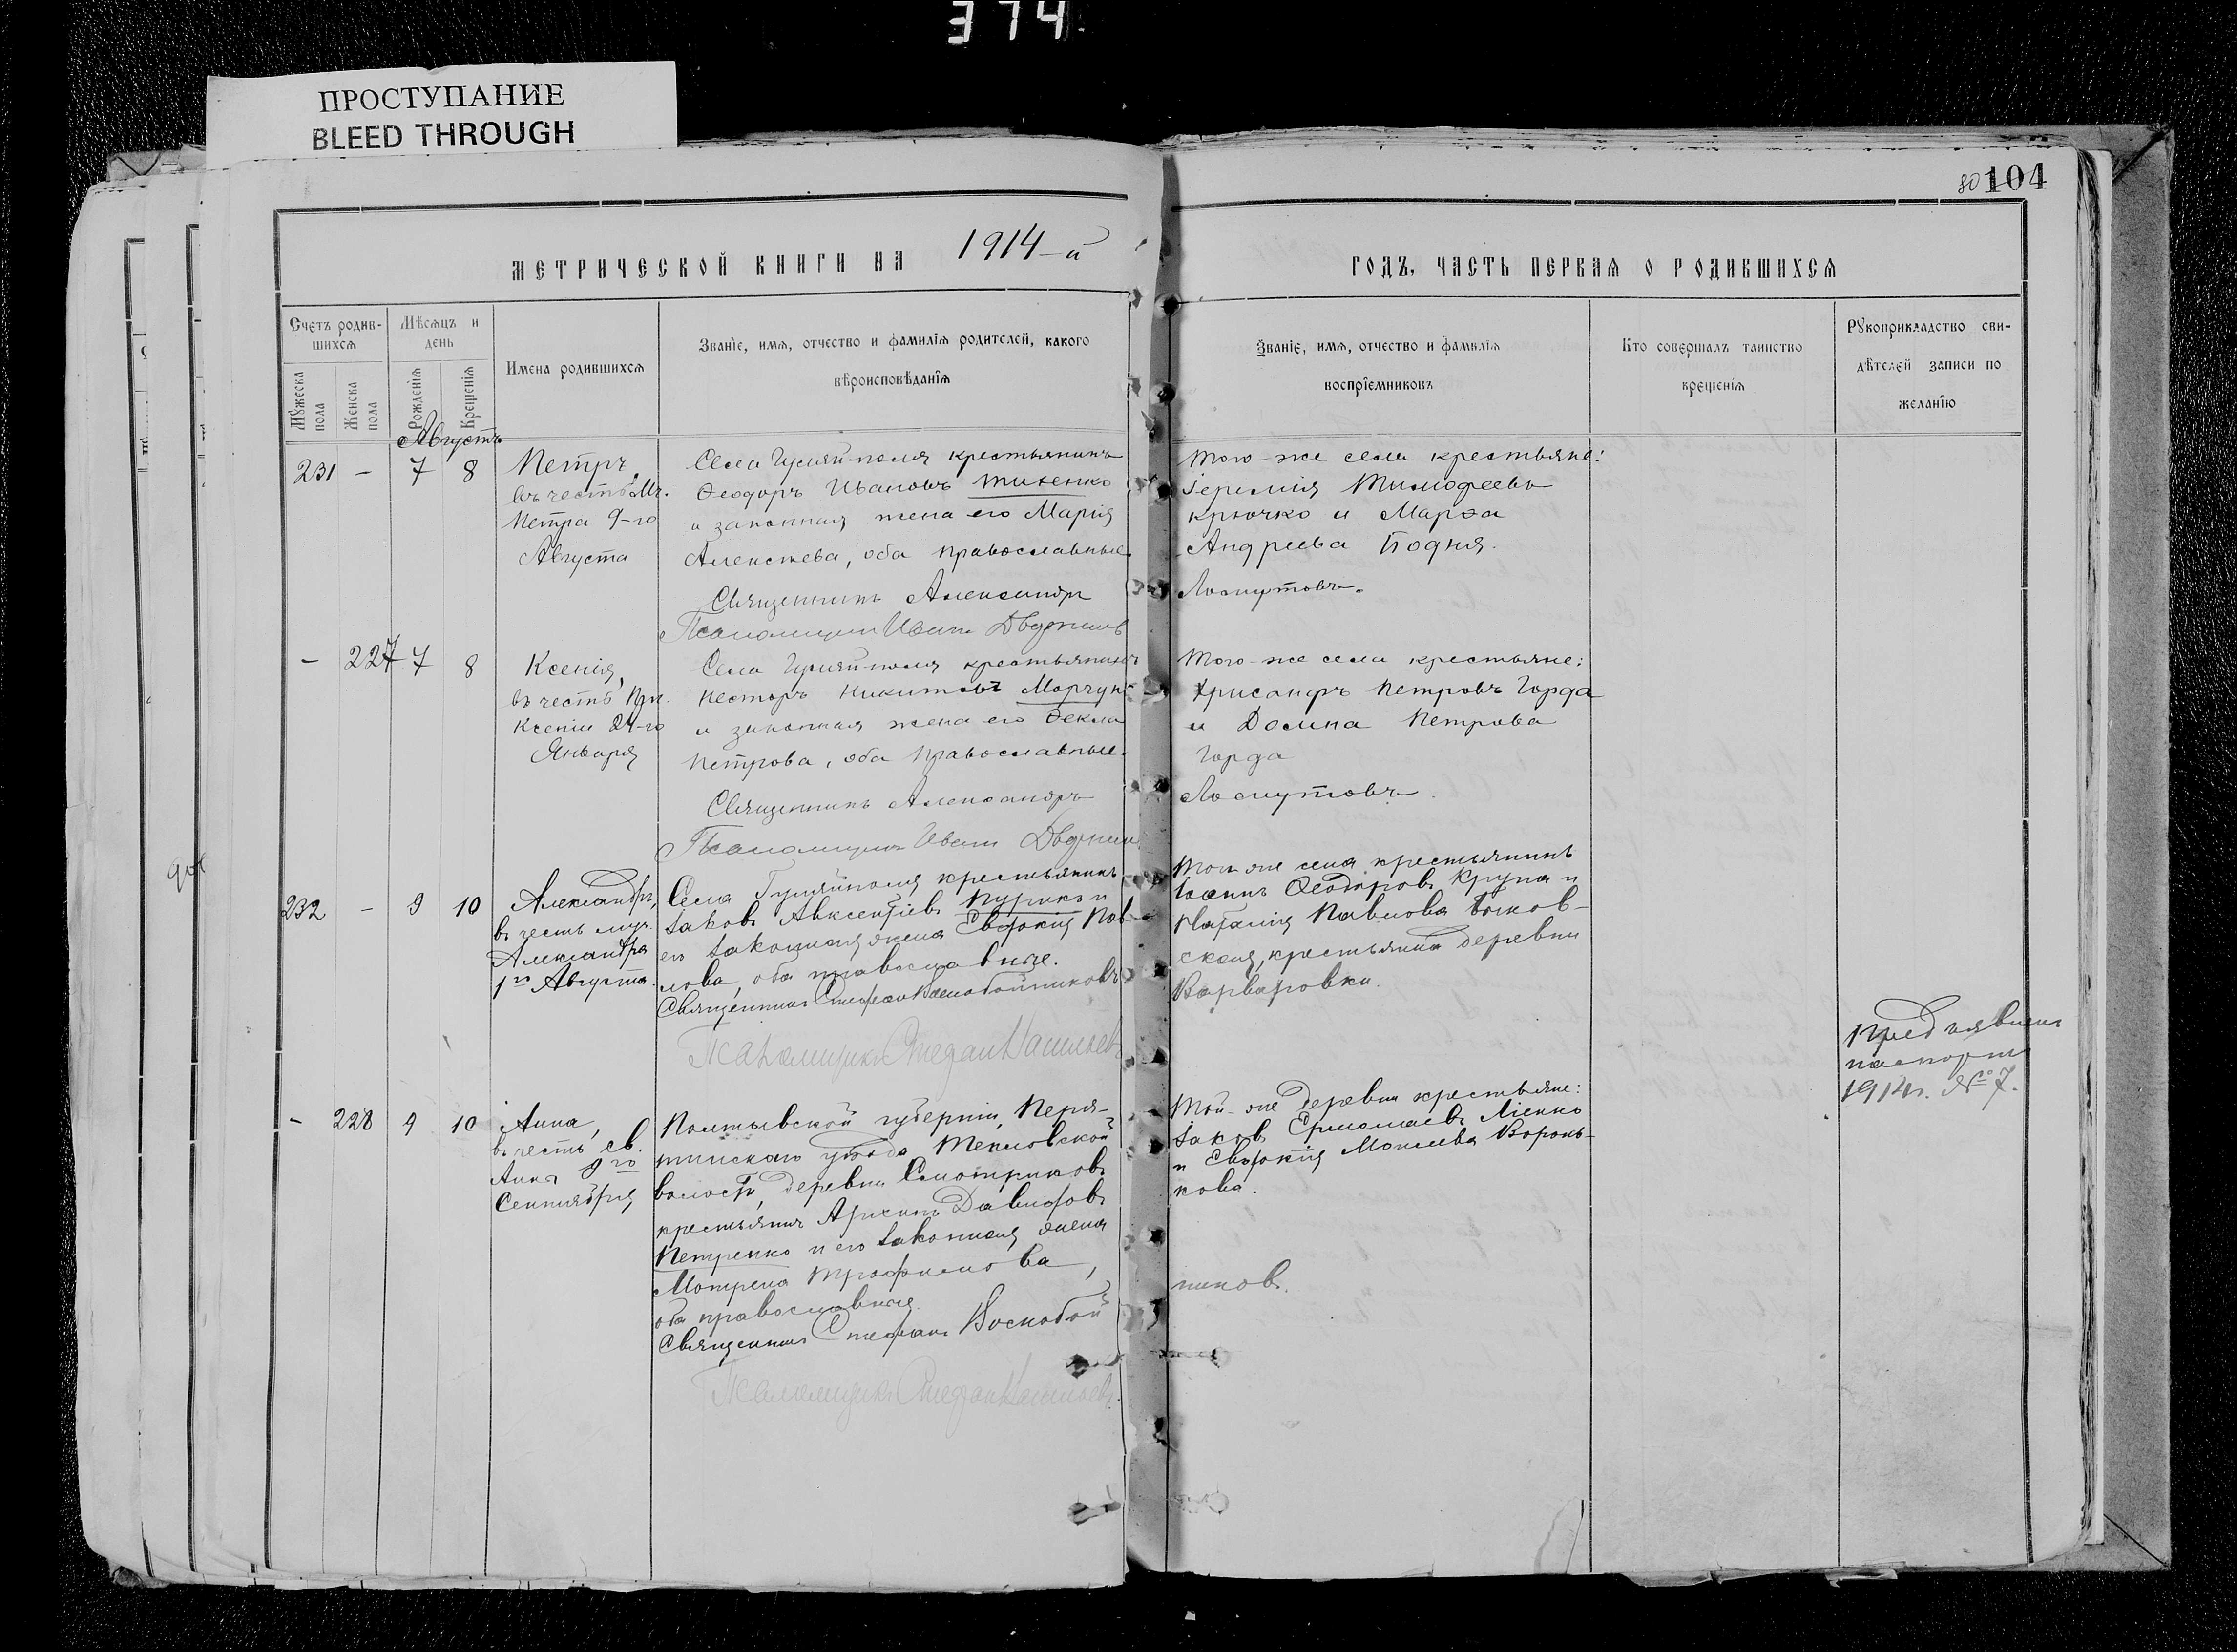 374
ПРОСТУПАНИЕ
BLEED THROUGH
80 104
МЕТРИЧЕСКОЙ КНИГИ НА 1914-й
ГОДЪ, ЧАСТЬ ПЕРВАЯ О РОДИВШИХСЯ
Счетъ родив-
шихся
Мужеска пола
Женска пола
Мѣсяцъ и
день
Рожденія
Крещенія
Имена родившихся
Званіе, имя, отчество и фамилія родителей, какого
вѣроисповѣданія
Званіе, имя, отчество и фамилія
воспріемниковъ
Кто совершалъ таинство
крещенія
Рукоприкладство сви-
дѣтелей записи по
желанію
Августъ
231 - 7 8
Петръ,
въ честь Мч.
Петра 9-го
Августа
Села Гуляй-поля крестьянинъ
Феодоръ Ивановъ
и законная жена его Марія
Алексѣева, оба православные
Священникъ Александръ
Псаломщикъ Иванъ
Того-же села крестьяне:
Іеремія Тимофеевъ
Крючко и Марфа
Андреева
Лоскутовъ.
- 227 7 8
Ксенія,
въ честь Прп.
Ксеніи 24-го
Января
Села Гуляй-поля крестьянинъ
Несторъ Никитовъ
и законная жена его Фекла
Петрова, оба православные.
Священникъ Александръ
Псаломщикъ Иванъ
Того-же села крестьяне:
Хрисанфъ Петровъ Горда
и Домна Петрова
Горда
Лоскутовъ
232 - 9 10
Александръ,
въ честь муч.
Александра
1го Августа.
Села Гуляйполя крестьянинъ
Іаковъ Авксентіевъ
его законная жена Евдокія Пав-
лова, оба православные.
Священникъ Стефанъ Воскобойниковъ
Псаломщикъ Стефанъ
Того же села крестьянинъ
Іоаннъ Феодоровъ Крупа и
Наталія Павлова
ская, крестьянка деревни
Варваровки.
- 228 9 10
Анна,
въ честь св.
Анна 9го
Сентября
Полтавской губерніи, Пиря-
тинскаго уѣзда
волости, деревни
крестьянинъ Давидовъ
Петренко и его законная жена
Мотрена Трофимова,
оба православные.
Священникъ Стефанъ Воскобой
Псаломщикъ Стефанъ
Той-же деревни крестьяне:
Іаковъ Ермолаевъ
и Евдокія Моисеева Воронь-
кова.
никовъ.
Предъявленъ
паспортъ
1914г. №7.